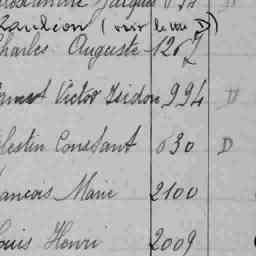 (voir lettre D)
Charles Auguste 1267
Victor Isidore 994 D
Célestin Constant 630 D
François Marie 2100
Louis Henri 2009